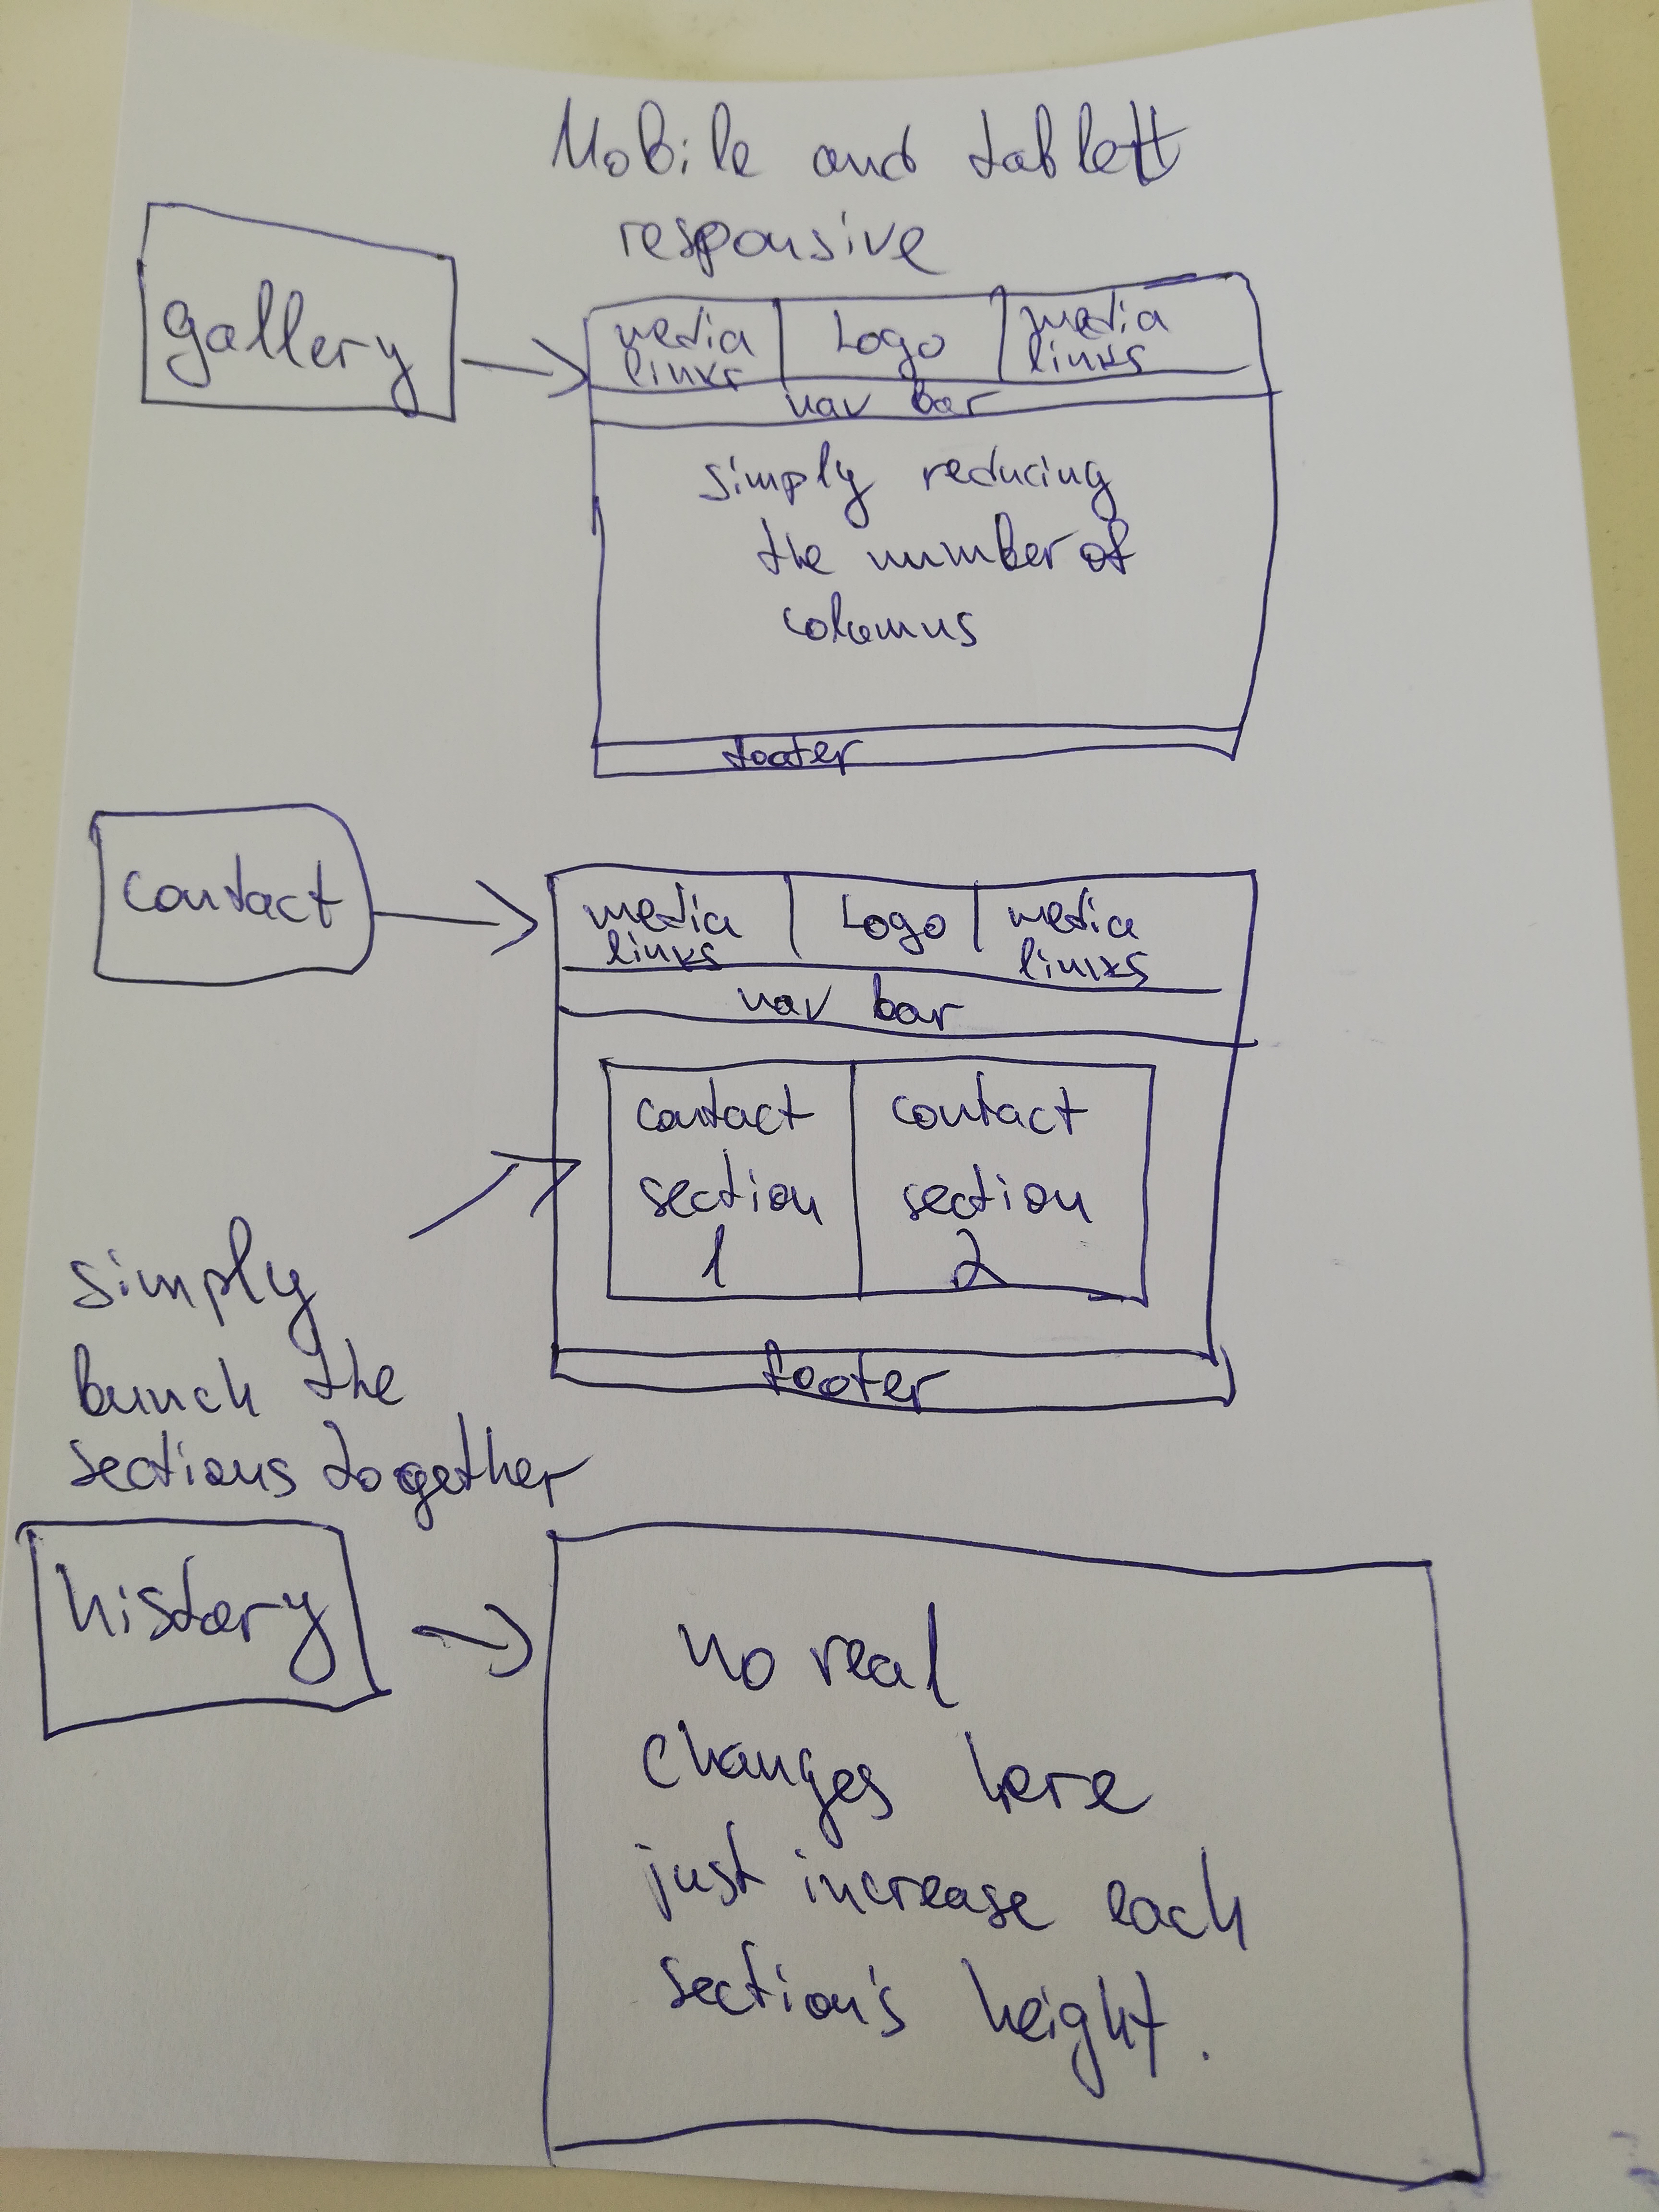 Mobile and tablett
responsive
gallery
media links
Logo
media links
nav bar
simply reducing
the number of
columns
footer
contact
media links
Logo
media links
nav bar
contact section 1
contact section 2
footer
simply
bunch the
sections together
history
no real
changes here
just increase each
section's height.